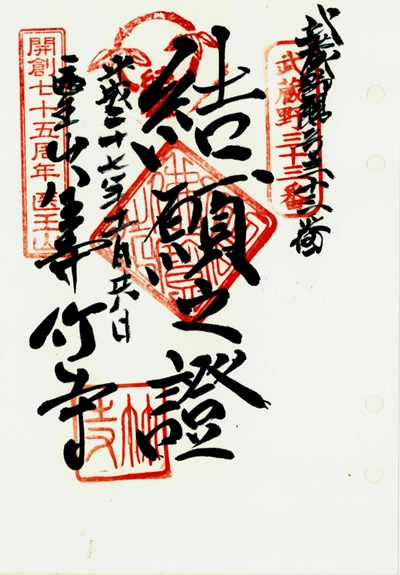 武蔵野観音三十三番
武蔵野三十三番
結願之證
平成二十七年十月
開創七十五周年 医王山
医王山八王寺 竹寺